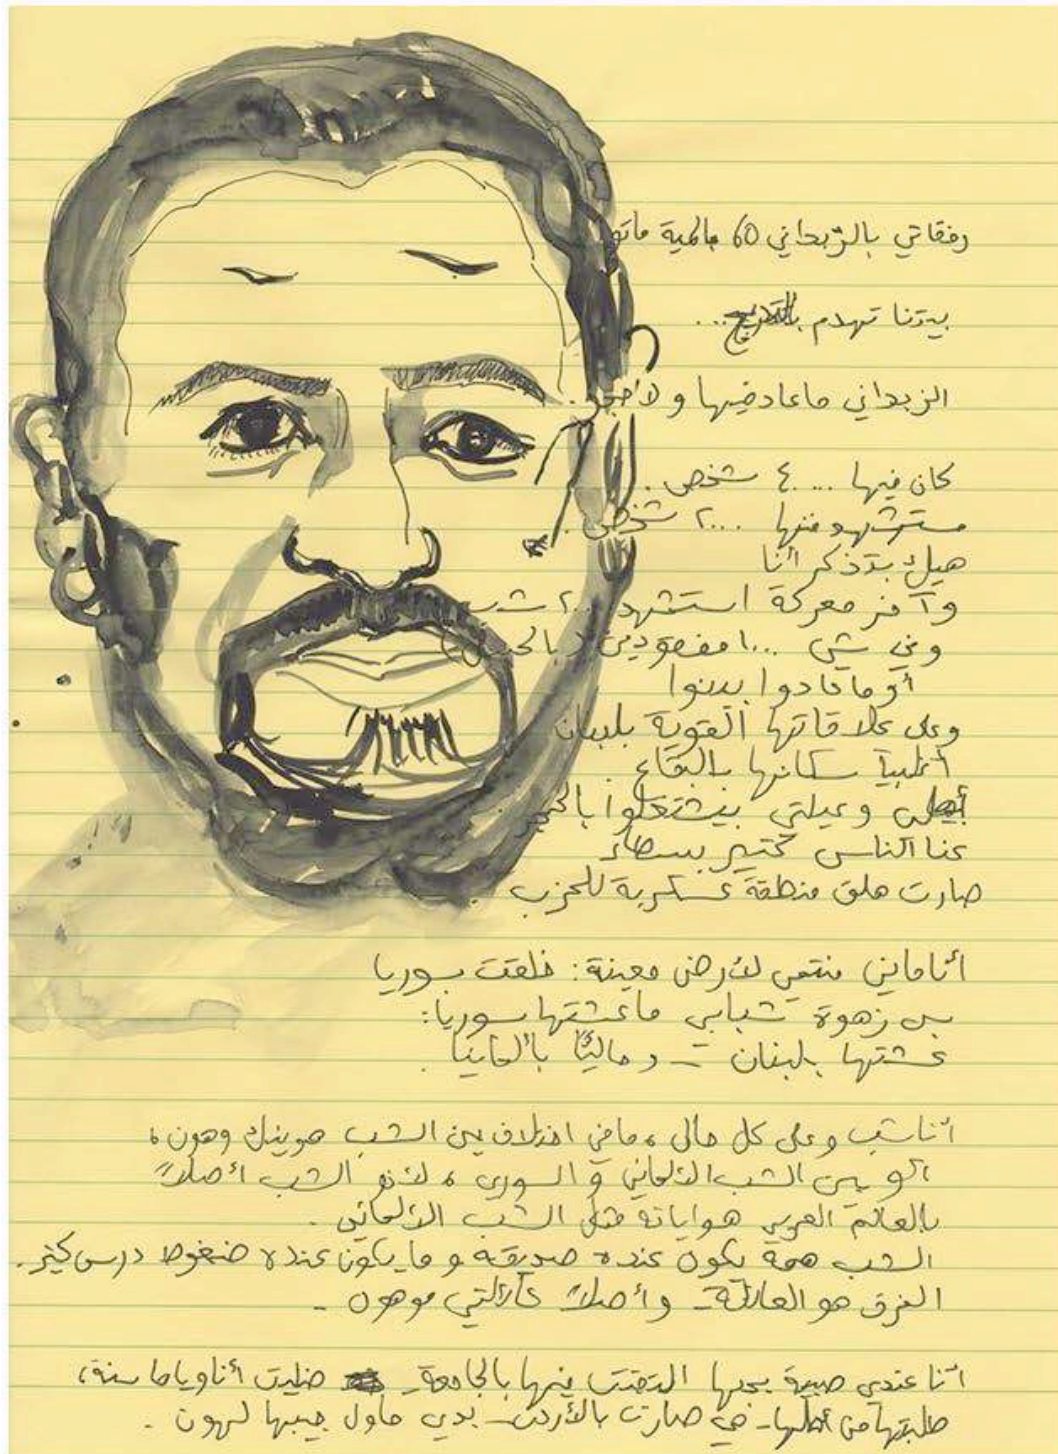 رفقاتي بالزبداني 60 بالمية ماتو
بيتنا تهدم بالتدريج...
الزبداني ما عاد فيها ولا حجر.
كان فيها ٤٠٠٠ شخص.
مستشهد منها ٢٠٠٠ شخص.
هيك بتذكر أنا
وآخر معركة استشهد ٢٠٠ شب
وفي شي ١٠٠٠ مفقودين
أو ما عادوا
وعلى علاقاتها القوية بلبنان
أغلبية سكانها بالبقاع.
أهلي وعيلتي بيشتغلوا بالحجر
عنا الناس كتير بسطاء
صارت هلق منطقة عسكرية للحزب
أنا ماني منتمي لأرض معينة: خلقت بسوريا
بس زهوة شبابي ما عشتها بسوريا:
عشتها بلبنان – وحاليًا بألمانيا.
أنا شب وعلى كل حال، ما في اختلاف بين الشب هونيك وهون،
أو بين الشب الألماني والسوري، لأنو الشب أصلاً
بالعالم العربي هواياته مثل الشب الألماني.
الشب همه يكون عنده صديقة وما يكون عنده ضغوط درس كتير.
الفرق هو العائلة – وأصلاً عائلتي مو هون –
أنا عندي صبية بحبها التقيت فيها بالجامعة – ضليت أنا وياها سنة،
طلبتها من أهلها – هي صارت بالأردن – بدي حاول جيبها لهون.